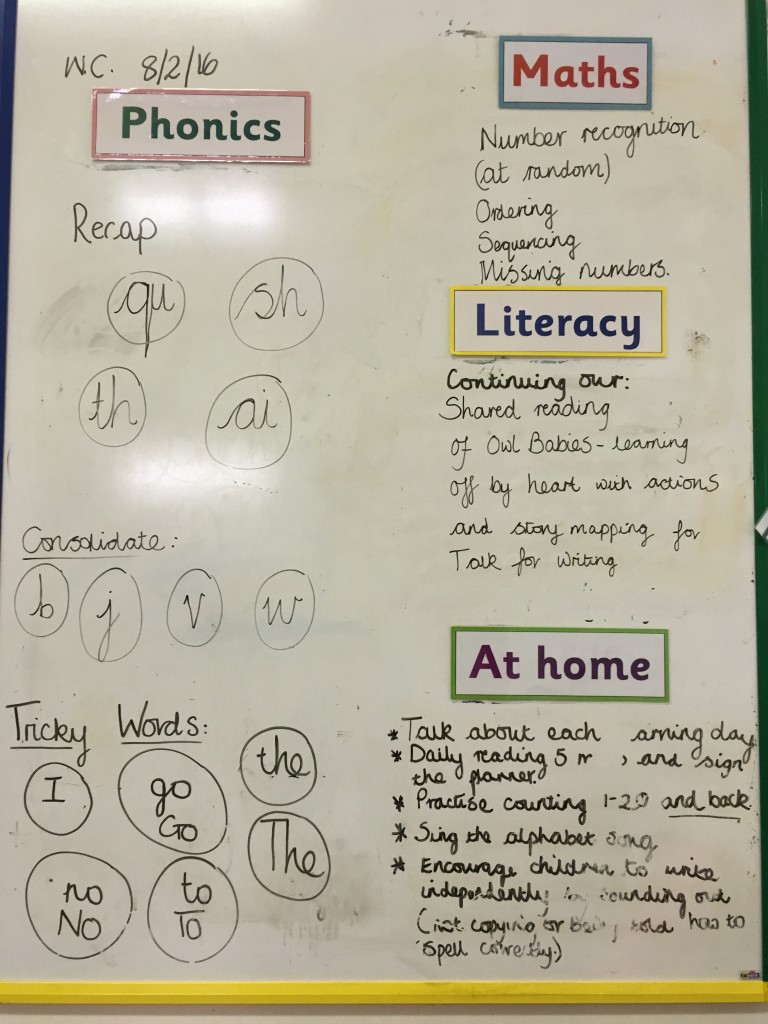 W.C. 8/2/16
Phonics
Recap
qu sh
th ai
Consolidate:
b j v w
Tricky Words:
I
go
Go
the
The
no
NO
to
TO
Maths
Number recognition
(at random)
Ordering
Sequencing
Missing numbers.
Literacy
Continuing our:
Shared reading
of Owl Babies - learning
off by heart with actions
and story mapping for
Talk for Writing
At home
* Talk about each arning day
* Daily reading 5 m , and sign
the planner.
* Practise counting 1-20 and back.
* Sing the alphabet song
* Encourage children to write
independently by sounding out
(not copying or being told how to
spell correctly.)